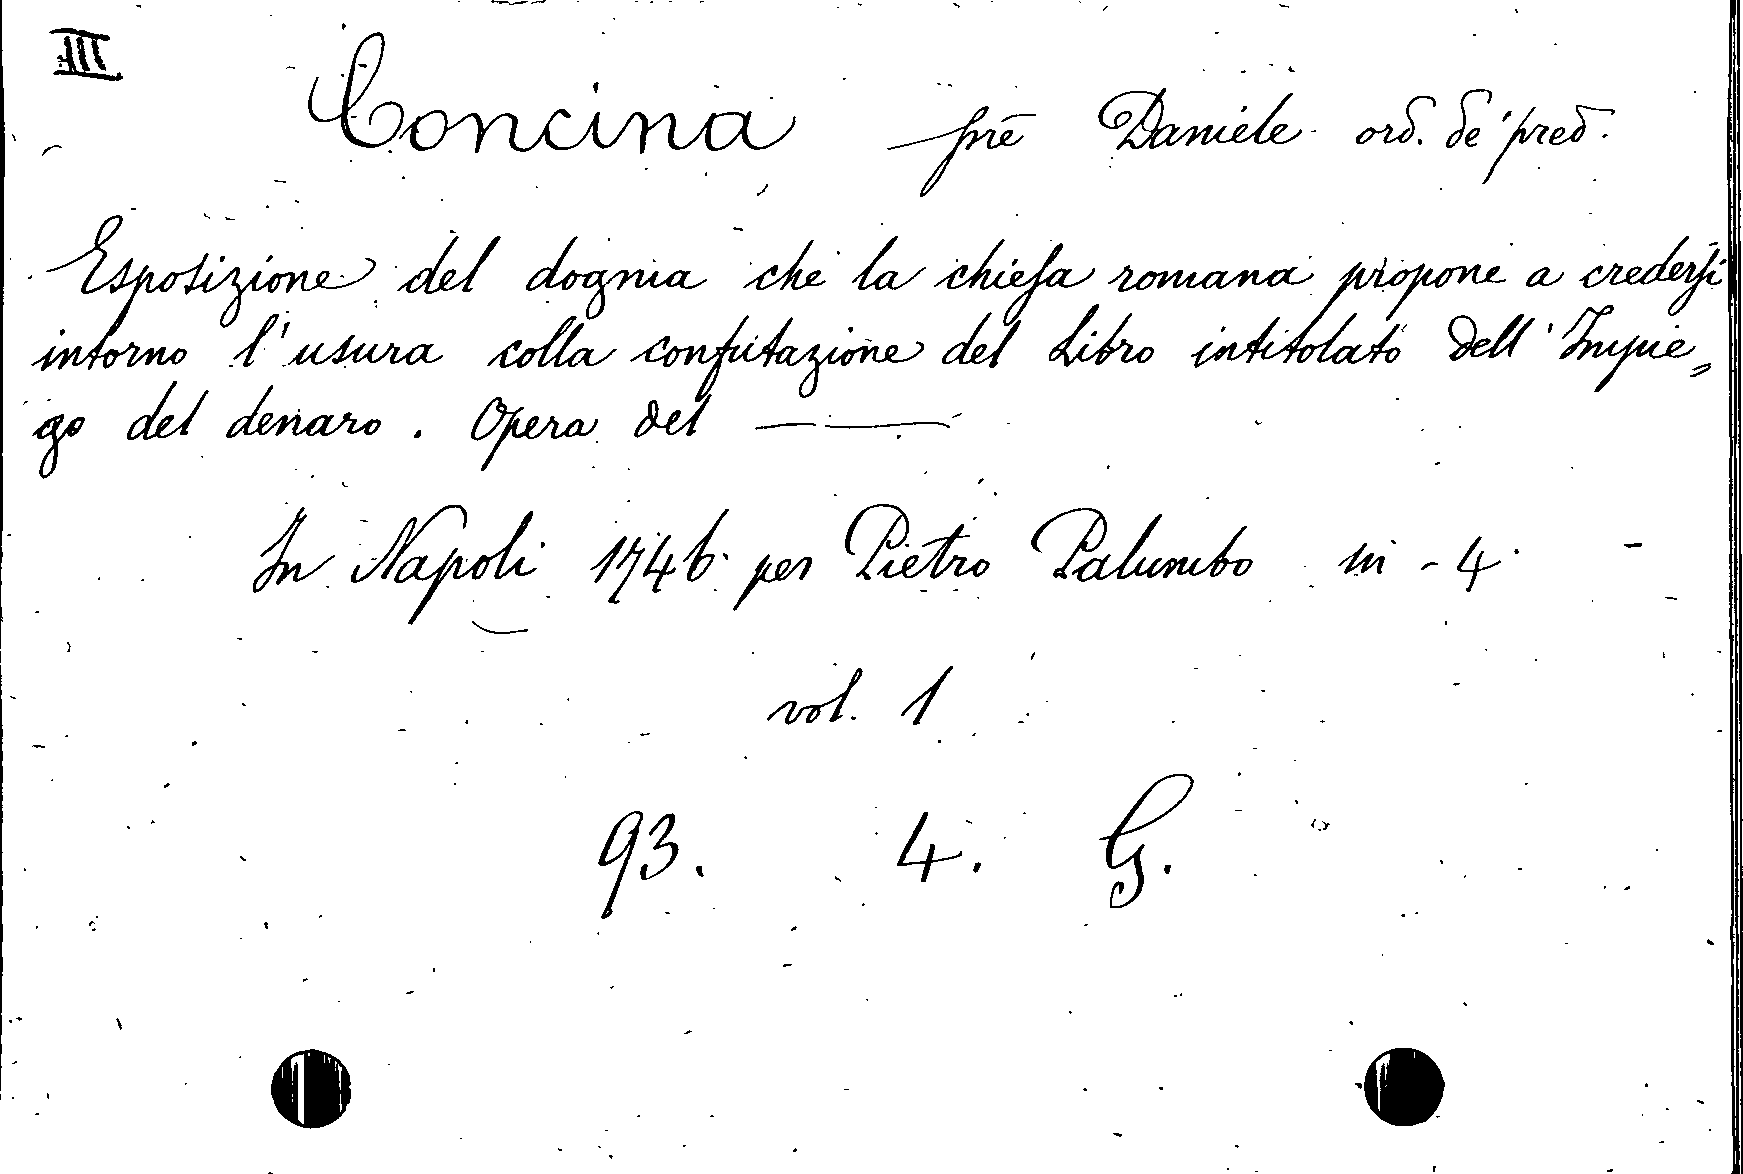 III
Concina fre Daniele ord. de' pred.
Esposizione del dogma che la chiesa romana propone a credersi
intorno l'usura colla confutazione del Libro intitolato dell'Impie„
go del denaro. Opera del ———
In Napoli 1746 per Pietro Palumbo in-4
vol. 1
93. 4. G.